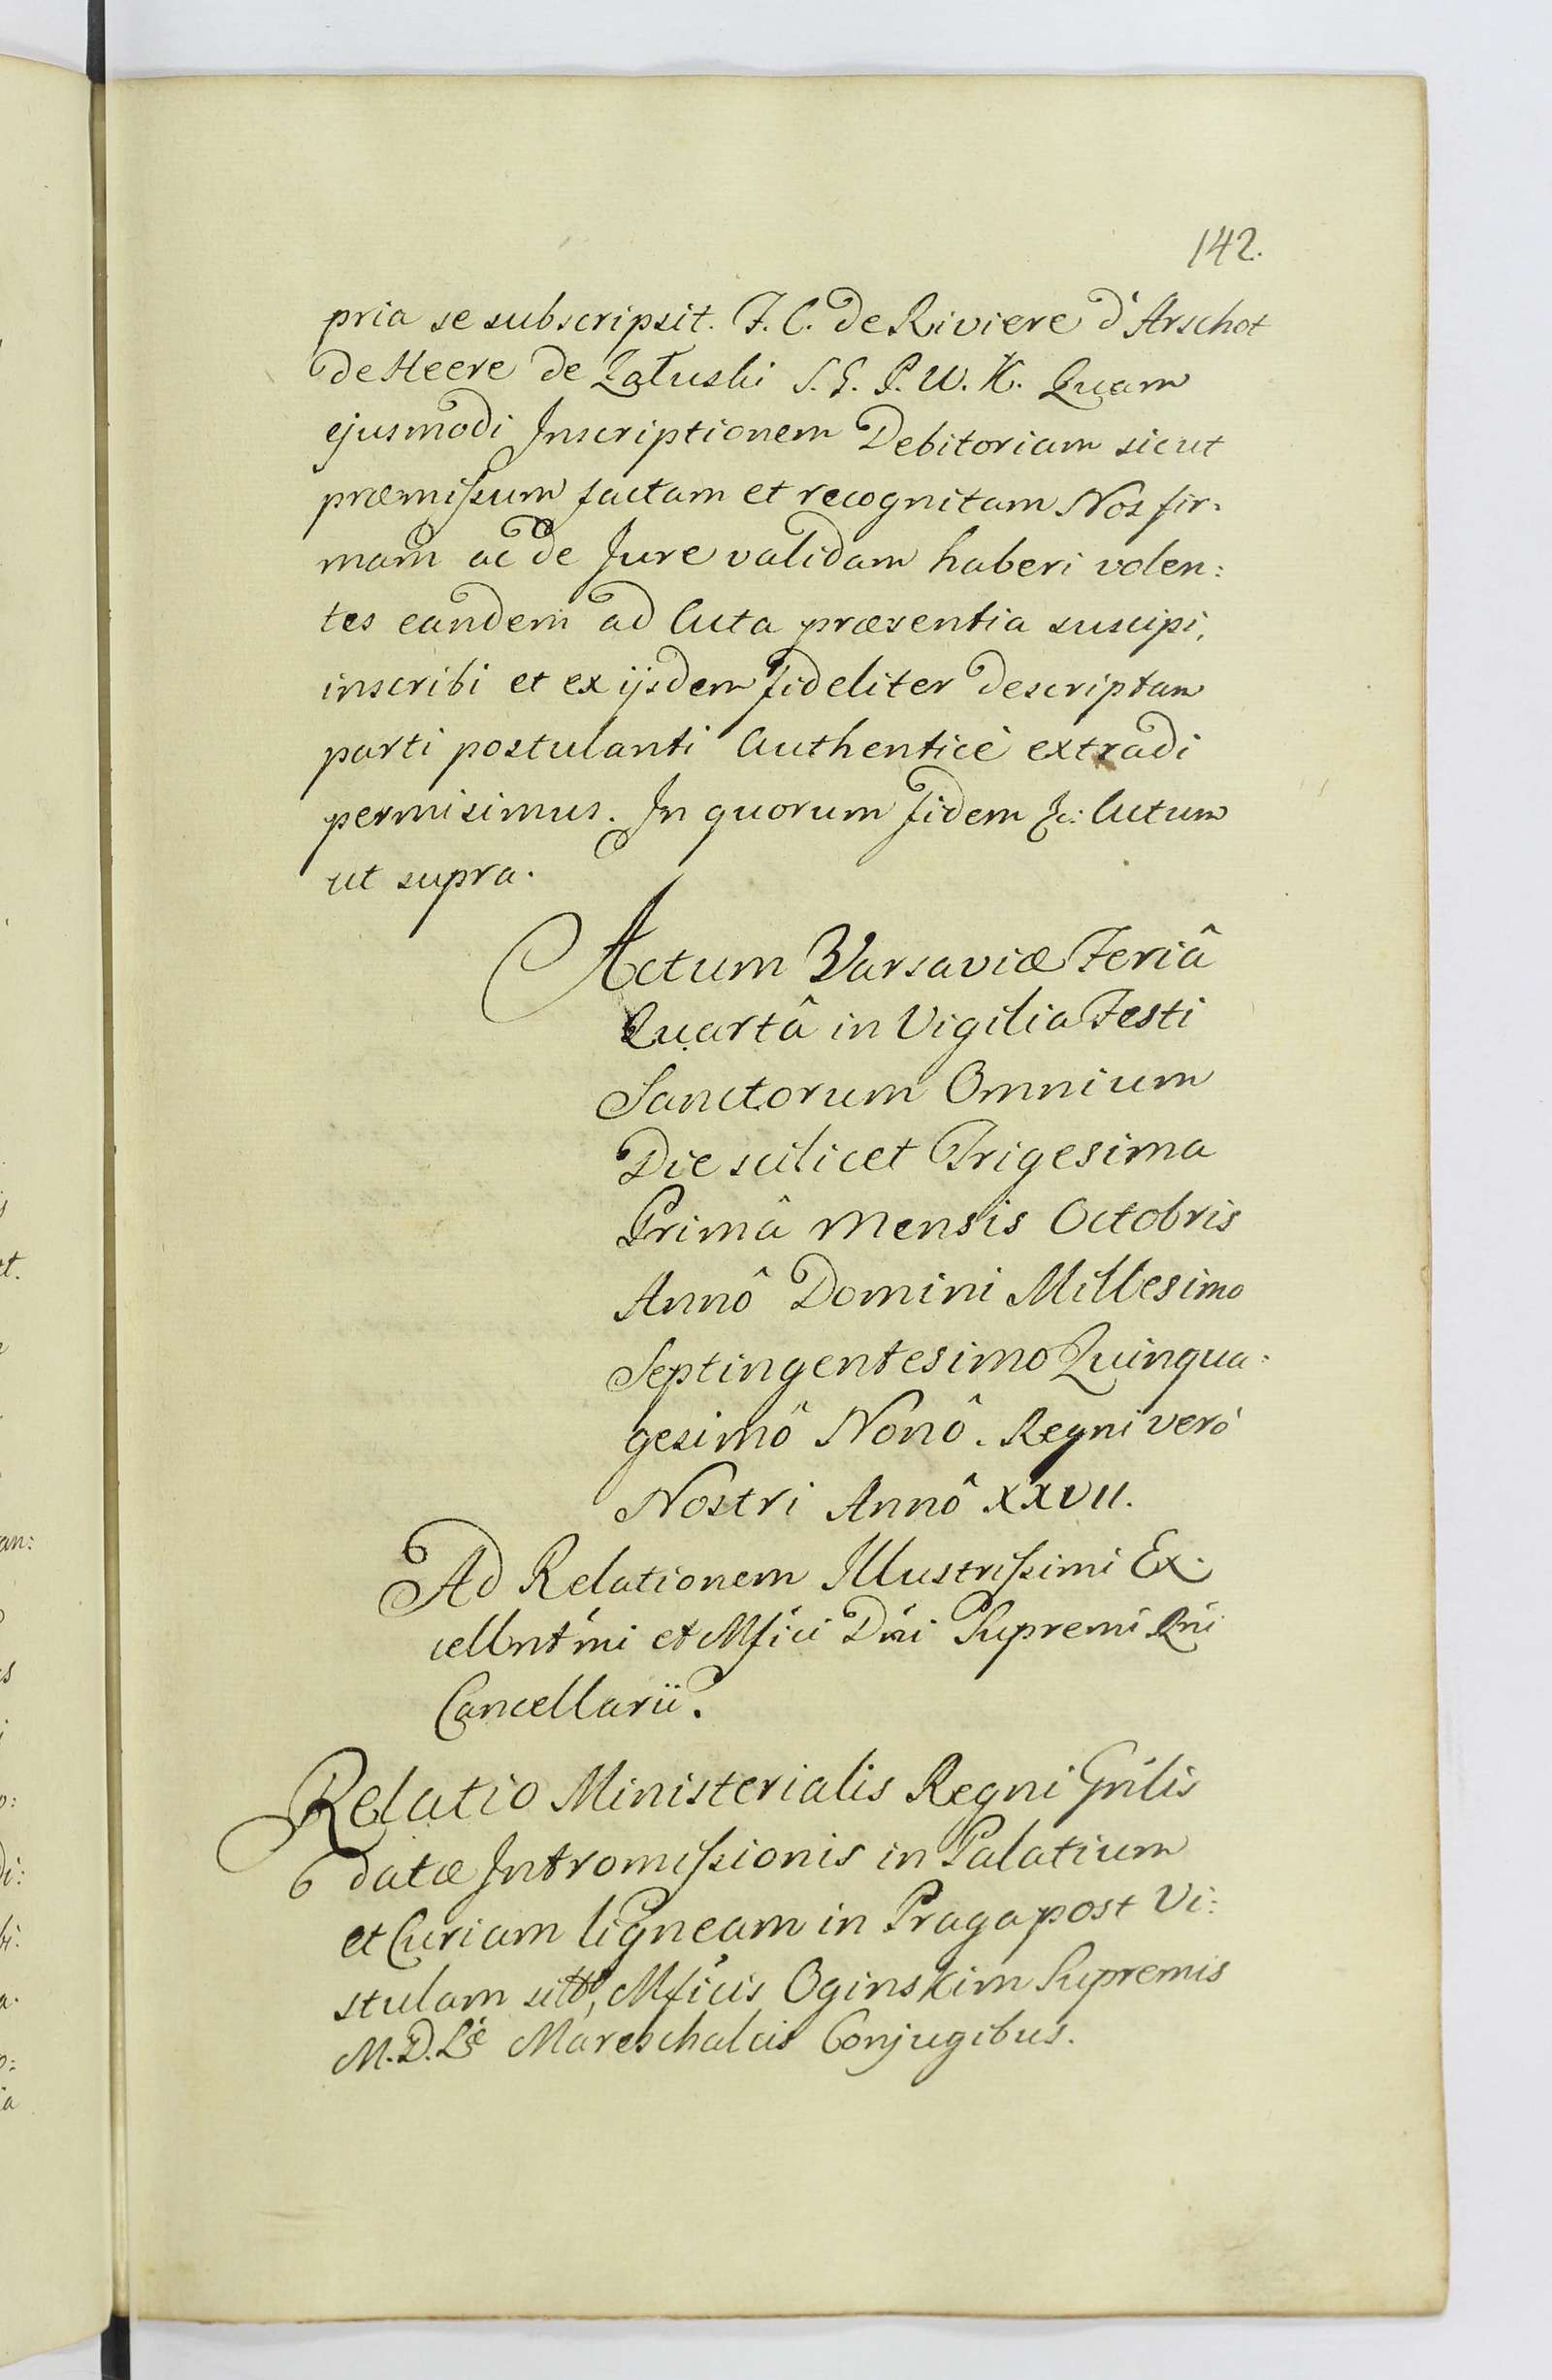 142.
pria se subscripsit. F. C. de Riviere d'Arschot
de Heere de Załuski S. G. P. W. K. Quam
ejusmodi Inscriptionem Debitoriam sicut
præmissum factam et recognitam Nos fir:
mam ac de Jure validam haberi volen:
tes eandem ad Acta præsentia suscipi,
inscribi et ex ijsdem fideliter descriptam
parti postulanti Authenticè extradi
permisimus. In quorum fidem &c: Actum
ut supra.
Actum Varsaviæ Feriâ
Quartâ in Vigilia Festi
Sanctorum Omnium
Die scilicet Trigesima
Primâ Mensis Octobris
Annô Domini Millesimo
Septingentesimo Quinqua:
gesimô Nonô. Regni verò
Nostri Annô XXVII.
Ad Relationem Illustrissimi Ex:
cellntmi et Mfici Dni Supremi Rni
Cancellarii.
Relatio Ministerialis Regni Gnlis
datæ Intromissionis in Palatium
et Curiam ligneam in Praga post Vi:
stulam Mficis Oginskim Supremis
M. D. Læ Mareschalcis Conjugibus.